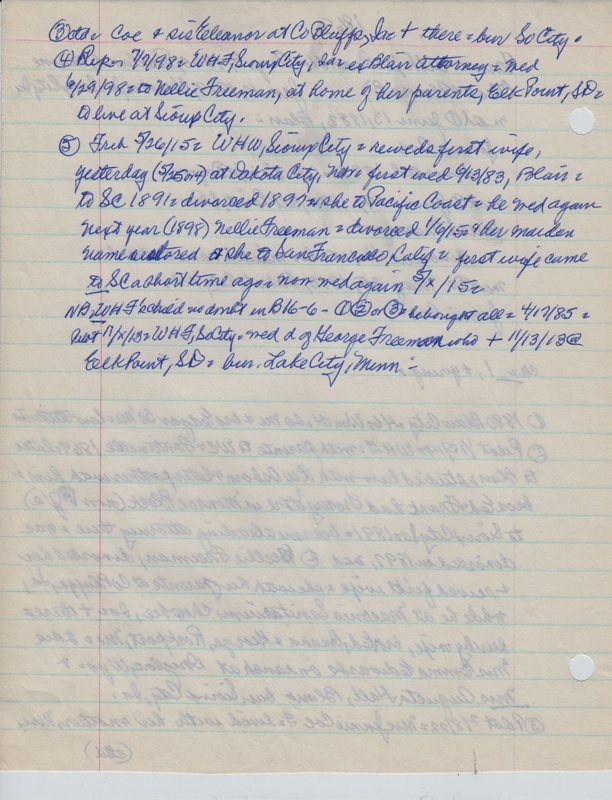 ③ Coe & sis Eleanor at Co Bluffs, Ia + there = bur So City.
④ Rep. 7/7/98 = WHF, Sioux City, Ia = ex Blair attorney = wed
6/29/98 = to Nellie Freeman, at home of her parents, Elk Point, SD =
to live at Sioux City.
⑤ 5/26/15 = WHW, Sioux City = reweds first wife,
yesterday (5/25) at Dakota City, = first wed 9/13/83, Blair =
to SC 1891 = divorced 1897 & she to Pacific Coast = he wed again
next year (1898) Nellie Freeman = divorced 1/6/15 & her maiden
name restored & she to San Francisco Calif = first wife came
to SC a short time ago = now wed again 5/x/15 =
NB. WHF buried no doubt in B16-6- ① ② or ③ = he bought all = 4/17/85 =
11/x/13 = WHF, So City = wed d of George Freeman who + 11/13/13 @
Elk Point, SD = bur. Lake City, Minn =